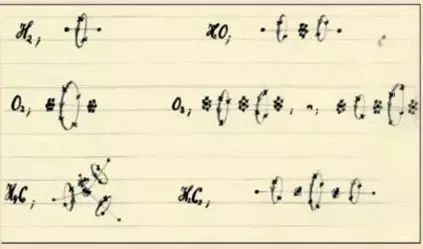 H₂, HO,
O₂, O₃, , ",
H₄C, H₂C₂,